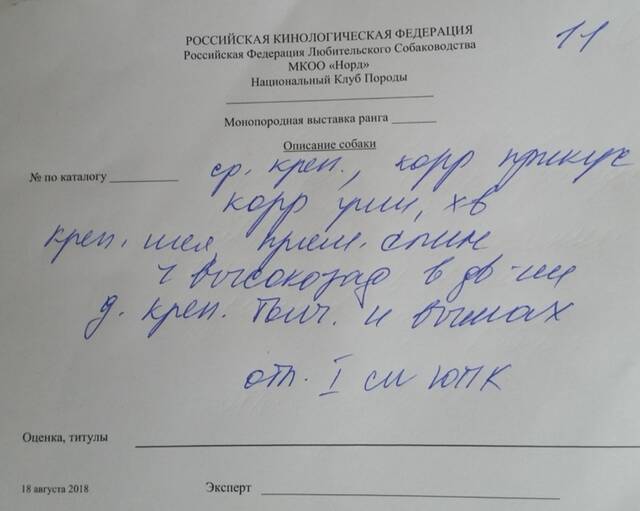 РОССИЙСКАЯ КИНОЛОГИЧЕСКАЯ ФЕДЕРАЦИЯ
11
Российская Федерация Любительского Собаководства
МКОО «Норд»
Национальный Клуб Породы
Монопородная выставка ранга
Описание собаки
№ по каталогу
ср. креп., корр прикус
корр уши, хв
креп. шея, прям. спин
ч высокозад в дв-ии
д. креп. толч. и вымах
отл. I см ЮПК
Оценка, титулы
18 августа 2018
Эксперт